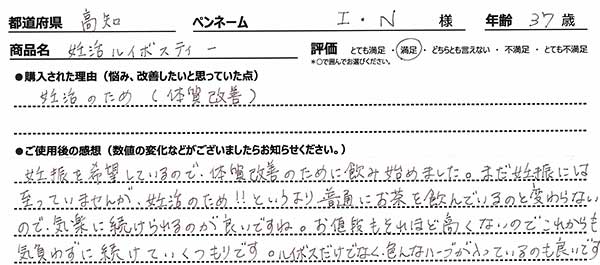 都道府県 高知 ペンネーム I・N 様 年齢 37 歳
商品名 妊活ルイボスティー 評価 とても満足・満足・どちらとも言えない・不満足・とても不満足
*○で囲んでお選びください。
●購入された理由（悩み、改善したいと思っていた点）
妊活のため（体質改善）
●ご使用後の感想（数値の変化などがございましたらお知らせください。）
妊娠を希望しているので、体質改善のために飲み始めました。まだ妊娠には
至っていませんが、妊活のため!!というより普通にお茶を飲んでいるのと変わらない
ので、気楽に続けられるのが良いですね。お値段もそれほど高くないのでこれからも
気負わずに続けていくつもりです。ルイボスだけでなく、色んなハーブが入っているのも良いです